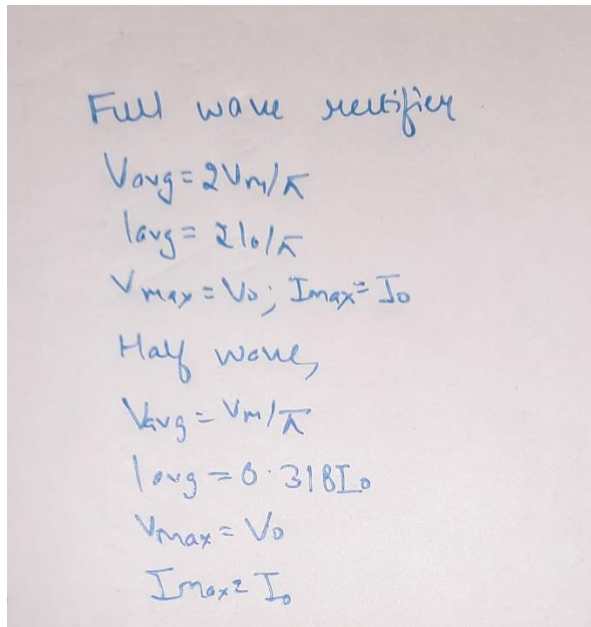 Full wave rectifier
Vavg = 2Vm/π
Iavg = 2I0/π
Vmax = V0; Imax = I0
Half wave,
Vavg = Vm/π
Iavg = 0.318I0
Vmax = V0
Imax = I0